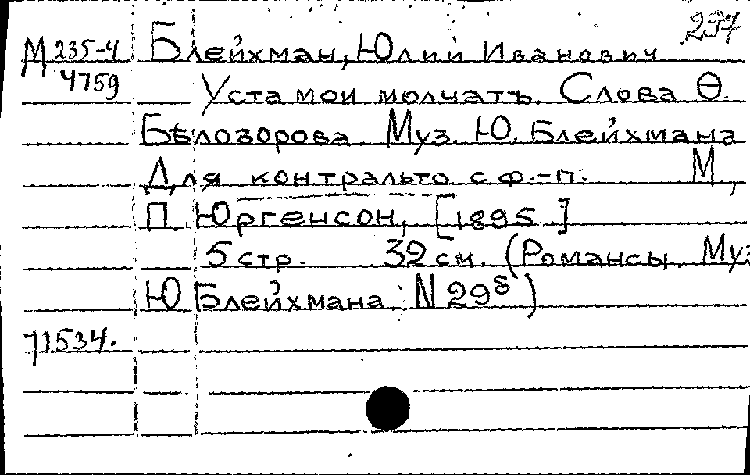 237
М 235-4 Блейхман, Юлий Иванович
4759 Уста мои молчатъ. Слова Ѳ.
Бѣлозорова. Муз. Ю. Блейхмана
Для контральто с ф.-п. М,
П. Юргенсон, [1895]
5 стр. 32 см. (Романсы Муз
Ю Блейхмана: N 29б)
71534.